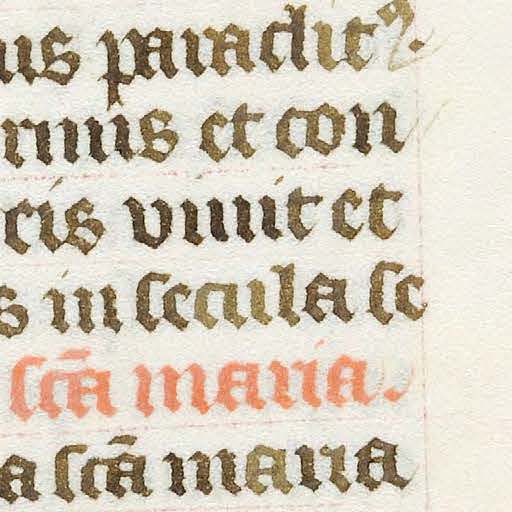 us paraclit9.
rmus et con
cis viuit et
s in secula se
scā maria.
a scā maria